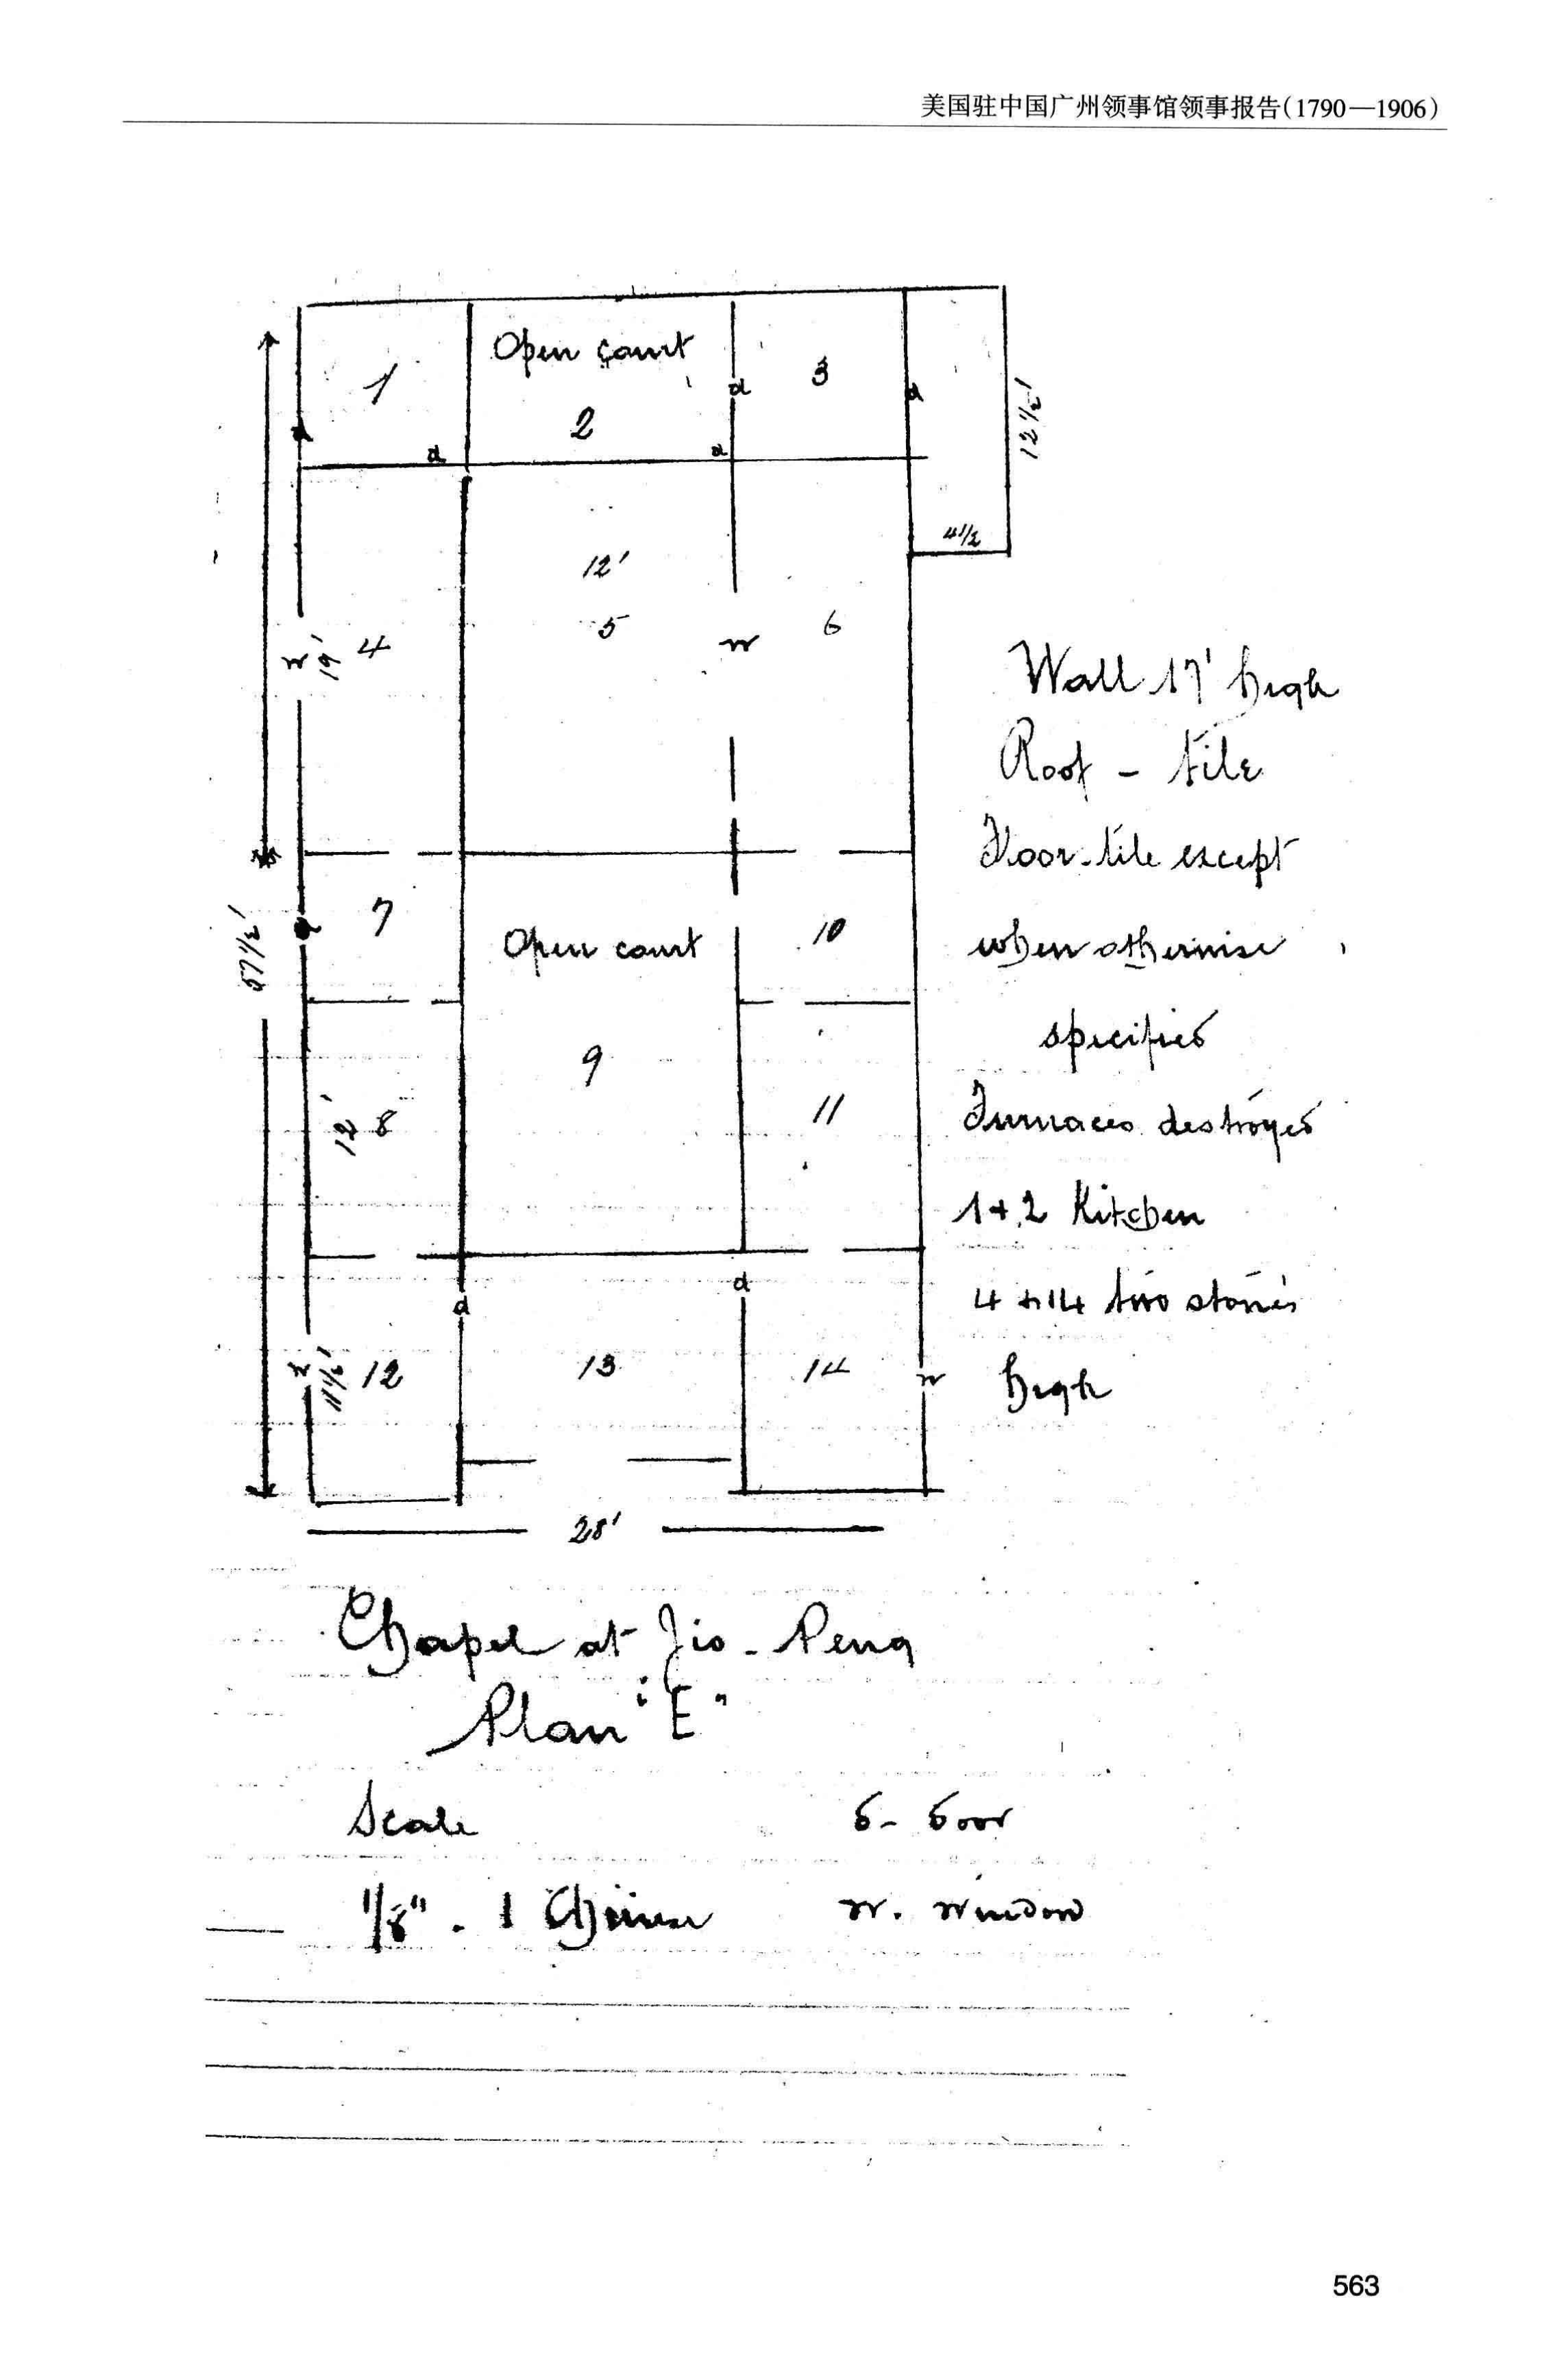 美国驻中国广州领事馆领事报告(1790—1906)
Open court
1
2
d
3
d
d
d
d
12½'
4½
12'
5
w
6
w
19'
4
Wall 17' high
Roof - tile
Floor-tile except
when otherwise
specified
Furnaces destroyed
1+2 Kitchen
4 + 14 two stories
high
57½'
7
Open court
10
9
12'
8
11
d
d
w
11½'
12
13
14
w
28'
Chapel at Jio-Peng
Plan "E"
Scale
d- door
1/8" - 1 Chinese
w. window
563